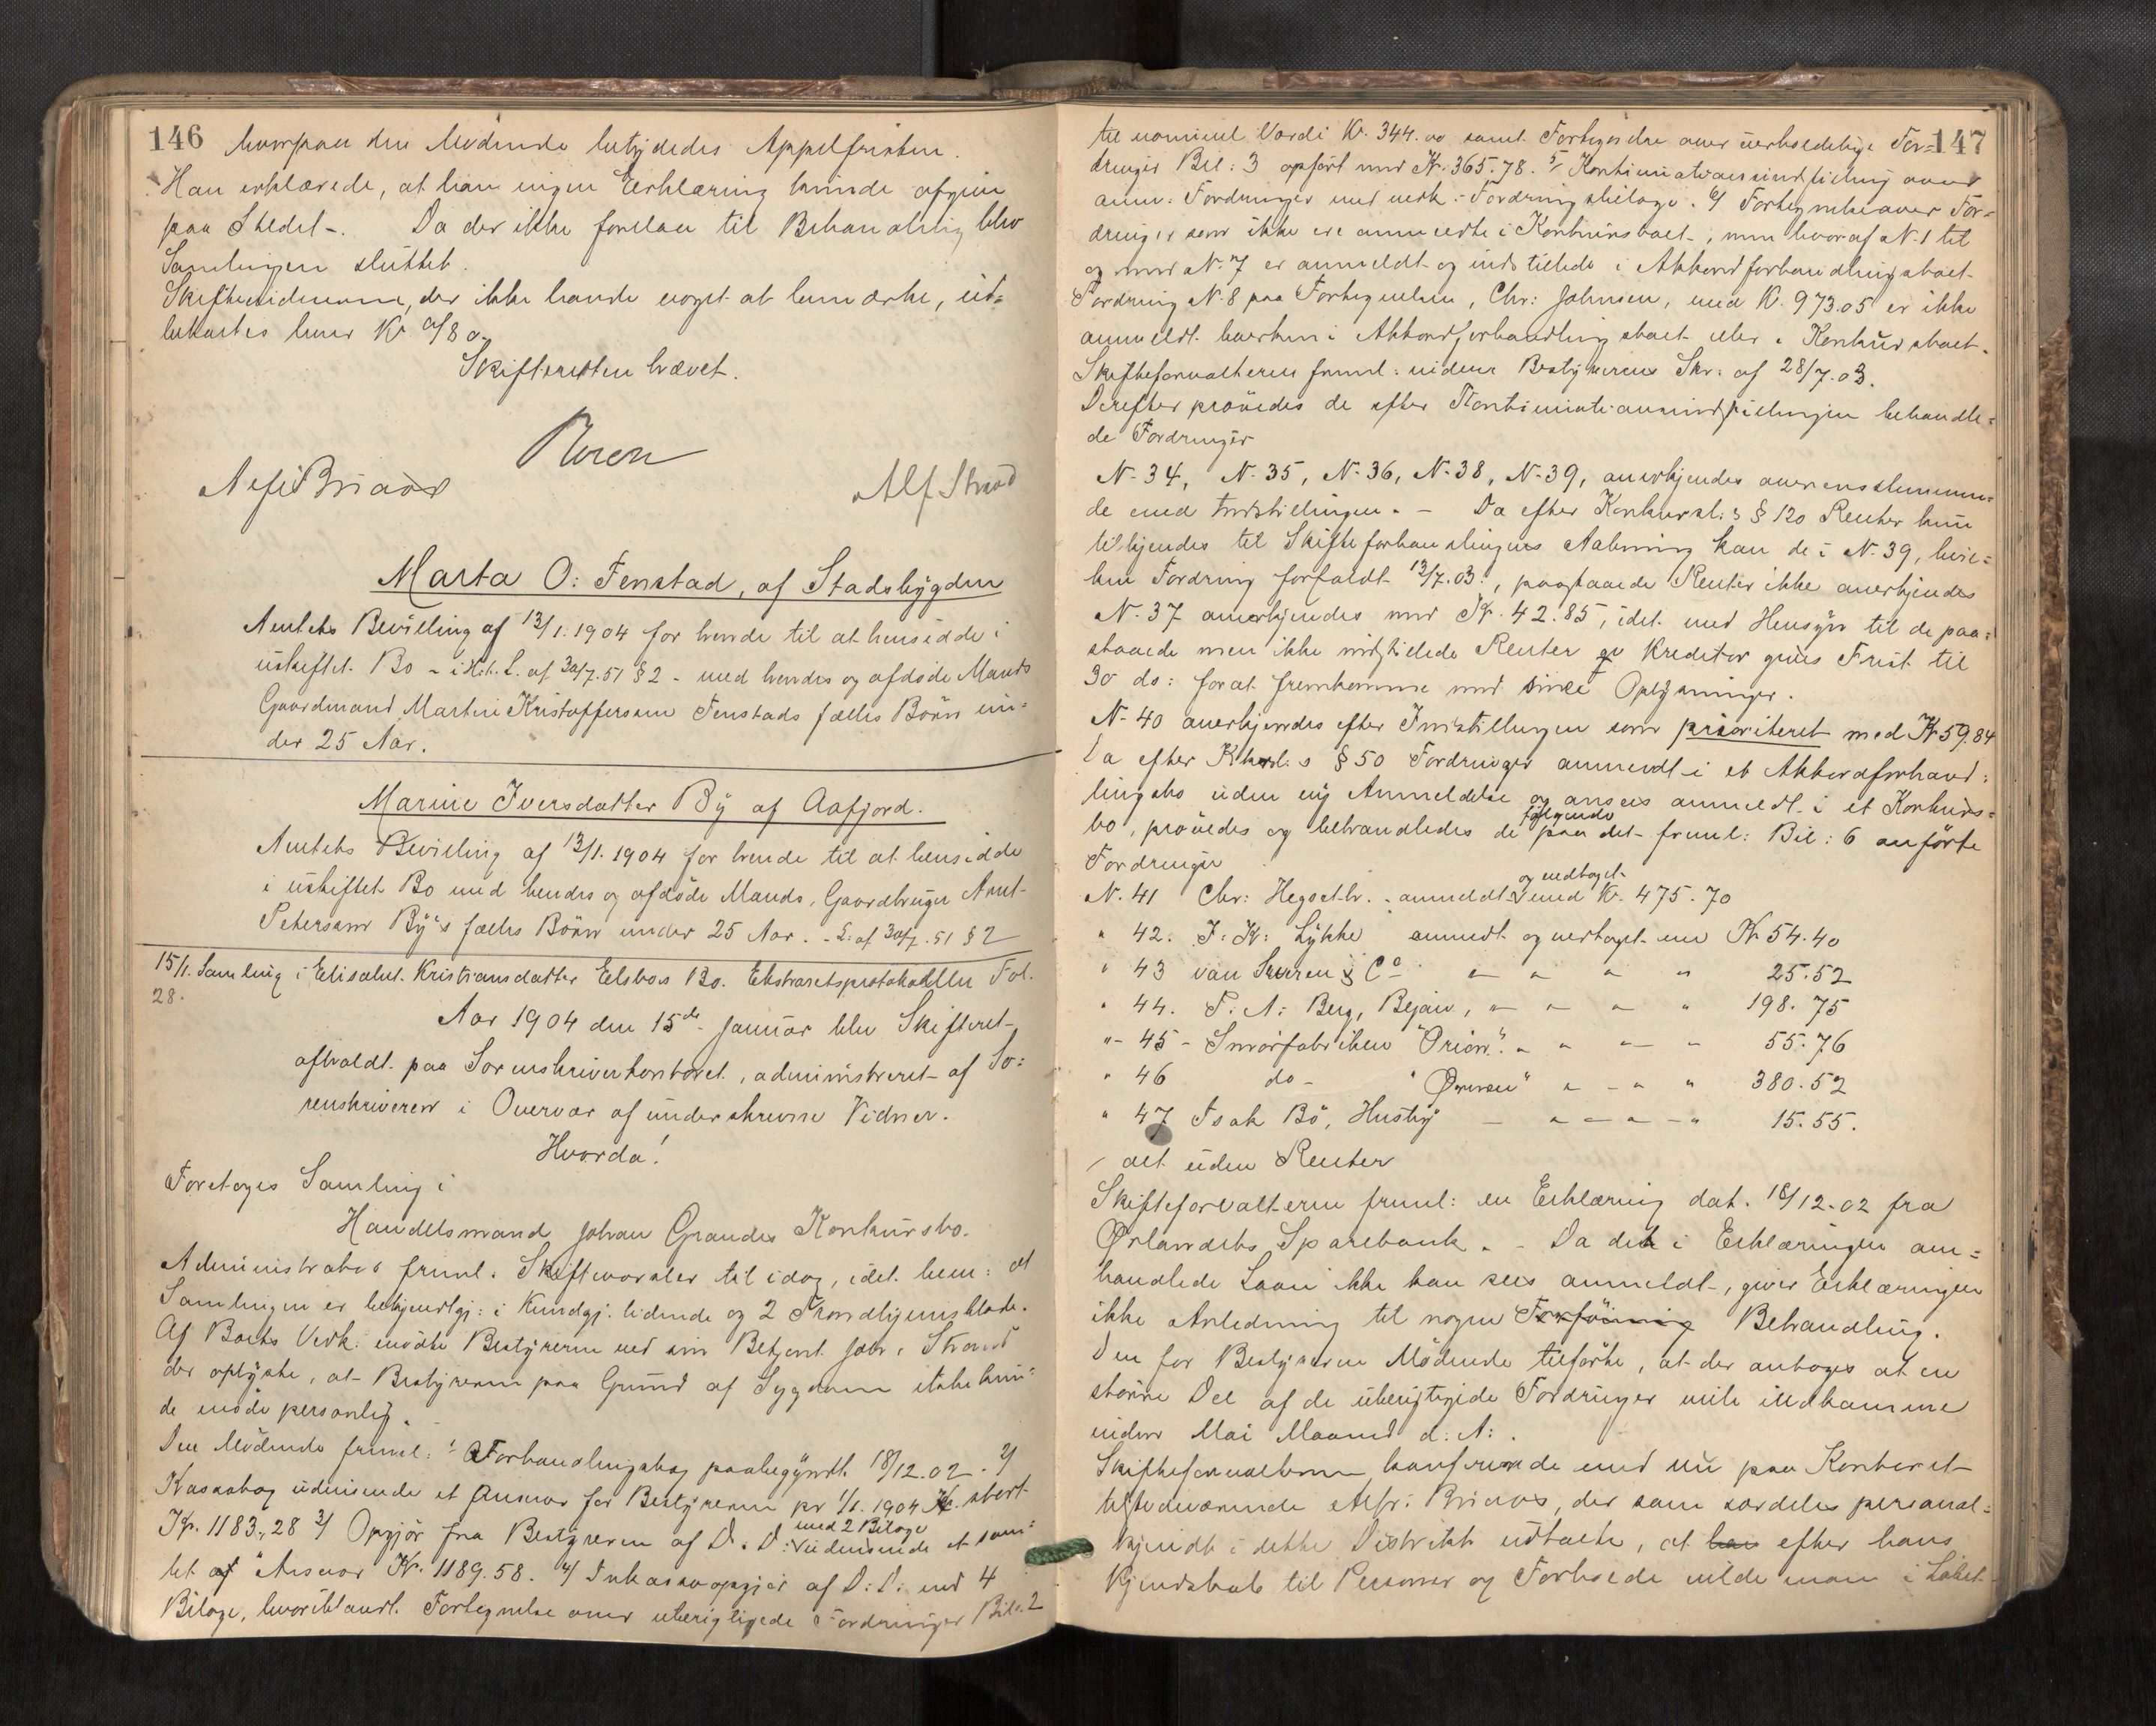 146
hvorpaa den Mødende betydedes Appelfristen.
Han erklærede, at han ingen Erklæring kunde afgive
paa Stedet -. Da der ikke forelaa til Behandling blev
Samlingen sluttet.
Skiftevidnerne, der ikke havde noget at bemærke, ud=
betaltes hver Kr 0/80.
Skifteretten hævet.
Alf Strand
Marta O: Fenstad, af Stadsbygden
Amtets Bevilling af 13/1. 1904 for hende til at hensidde i
uskiftet Bo - i Hh. t. L. af 30/7.51 § 2 - med hendes og afdøde Mands
Gaardmand Martin Kristoffersen Fenstads fælles Børn un=
der 25 Aar.
Marine Iversdatter By af Aafjord.
Amtets Bevilling af 13/1. 1904 for hende til at hensidde
i uskiftet Bo med hendes og afdøde Mands, Gaardbruger Arnt
Petersen By's fælles Børn under 25 Aar. - L. af 30/7.51 § 2
15/1. Samling i Elisabet Kristiansdatter Elsbos Bo. Ekstraretsprotokollen Fol.
28.
Aar 1904 den 15de Januar blev Skifteret
afholdt paa Sorenskriverkontoret, administreret af So=
renskriveren i Overvær af underskrevne Vidner.
Hvorda!
Foretoges Samling i
Handelsmand Johan Grandes Konkursbo.
Administrator freml. Skiftevarsler til idag, idet bem: at
Samlingen er bekjendtgj: i Kundgj. tidende og 2 Trondhjemsblade.
Af Boets Vedk: mødte Bestyreren ved sin Betjent Strand
der oplyste, at Bestyreren paa Grund af Sygdom ikke kun=
de møde personlig.
Den Mødende freml: 1/ Forhandlingsbog paabegyndt 18/12.02. 2/
Kassabog udvisende et Ansvar for Bestyreren pr 1/1. 1904 stort
Kr. 1183,28 3/ Opgjør fra Bestyreren af D. D: med 2 Bilage udvisende et sam=
let Ansvar Kr. 1189.58. 4/ Inkassoopgjør af D: D: med 4
Bilage, hvoriblandt Fortegnelse over uberigtigede Fordringer Bil. 2
147
til nominel Værdi Kr. 344.00 samt Fortegnelse over uerholdelige For=
dringer Bil: 3 opført med Kr. 365.78. 5/ Kontinuationsindstilling over
anm: Fordringer med vedk. Fordringsbilage. 6/ Fortegnelse over For=
dringer som ikke ere anmeldte i Konkursboet, men hvoraf N. 1 til
og med N. 7 er anmeldt og indstillede i Akkordforhandlingsboet
Fordring N. 8 paa Fortegnelsen, Chr: Johnsen, med Kr. 973.05 er ikke
anmeldt hverken i Akkordforhandlingsboet eller i Konkursboet.
Skifteforvalteren freml: videre Bestyrerens Skr: af 28/7.03.
Derefter prøvedes de efter Kontinuationsindstillingen behandle=
de Fordringer
N. 34, N. 35, N. 36, N. 38, N. 39, anerkjendes overensstemmen=
de med Indstillingen. - Da efter Konkursl:s § 120 Renter kun
tilkjendes til Skifteforhandlingens Aabning kan de i N. 39, hvil=
ken Fordring forfaldt 13/7.03., paastaaede Renter ikke anerkjendes
N. 37 anerkjendes med Kr. 42.85, idet med Hensyn til de paa=
staaede men ikke indstillede Renter Kreditor gives Frist til
30 ds: forat fremkomme med Oplysninger.
N. 40 anerkjendes efter Indstillingen som prioriteret med Kr 59.84
Da efter Kkursl:s § 50 Fordringer anmeldt i et Akkordforhand=
lingsbo uden ny Anmeldelse og ansees anmeldt i et Konkurs=
bo, prøvedes og behandledes de følgende paa det freml: Bil: 6 anførte
Fordringer
N. 41 Chr: Hegseth. - anmeldt og vedtaget med Kr. 475.70
" 42. J: K: Lykke anmeldt og vedtaget med Kr 54.40
" 43 van Severen & Co " " " " 25.52
" 44. P. A: Berg, Bejan, " " " " 198.75
" 45 - Smørfabriken "Orion". " " " " 55.76
" 46 do - "Ørnen" " - " " 380.52
" 47 Isak Bø, Husby - " - " - " 15.55.
alt uden Renter
Skifteforvalteren freml: en Erklæring dat. 18/12.02 fra
Ørlandets Sparebank. - Da det i Erklæringen om=
handlede Laan ikke kan sees anmeldt, giver Erklæringen
ikke Anledning til nogen Forføining Behandling.
Den for Bestyreren Mødende tilførte, at der antoges at en
større Del af de uberigtigede Fordringer vile indkomme
inden Mai Maaned d: A: .
Skifteforvalteren konfererede med nu paa Kontoret
tilstedeværende Briaos, der som særdeles personal=
kjendt i dette Distrikt udtalte, at han efter hans
Kjendskab til Personer og Forholde vilde man i Løbet